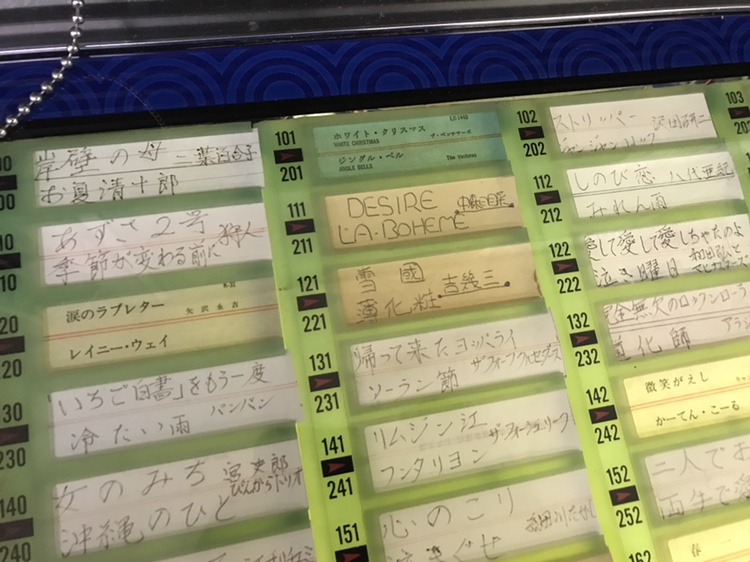 岸壁の母 二葉百合子
お夏清十郎
あずさ2号 狩人
季節が変わる前に
涙のラブレター 矢沢永吉
レイニー・ウェイ
30
230
いちご白書」をもう一度
冷たい雨 バンバン
140
240
女のみち 宮史郎
ぴんからトリオ
沖縄のひと
101
201
ホワイト・クリスマス
WHITE CHRISTMAS
ザ・ベンチャーズ
ジングル・ベル
JINGLE BELLS
The Ventures
111
211
DESIRE 中森明菜
LA・BOHEME
121
221
雪國 吉幾三
薄化粧
131
231
帰って来たヨッパライ
ザ・フォーク・クルセダーズ
ソーラン節
141
241
リムジン江
フンタリヨン
151
心のこり
泣きぐせ
102
202
ストリッパー 沢田研二
ジャンジャンロック
112
212
しのび恋 八代亜紀
みれん雨
122
222
愛して愛して愛しちゃったのよ
泣き曜日 和田弘と
132
232
完全無欠のロックンローラー
道化師
142
242
微笑がえし
かーてん・こーる
152
252
二人でお
両手で愛
162
春一
103